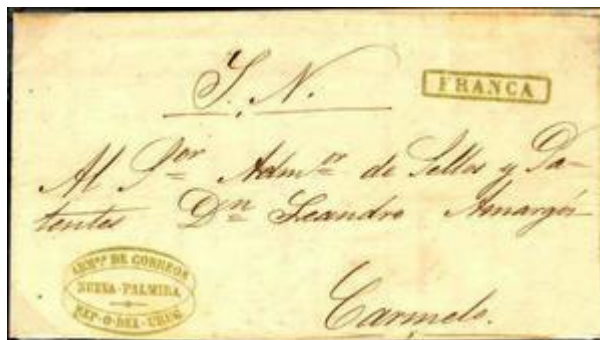 S. N.
FRANCA
Al Sor Admor de Sellos y Pa-
tentes Dn Leandro Amargós
Carmelo.
ADMON DE CORREOS
NUEVA-PALMIRA
REP-O-DEL-URUG